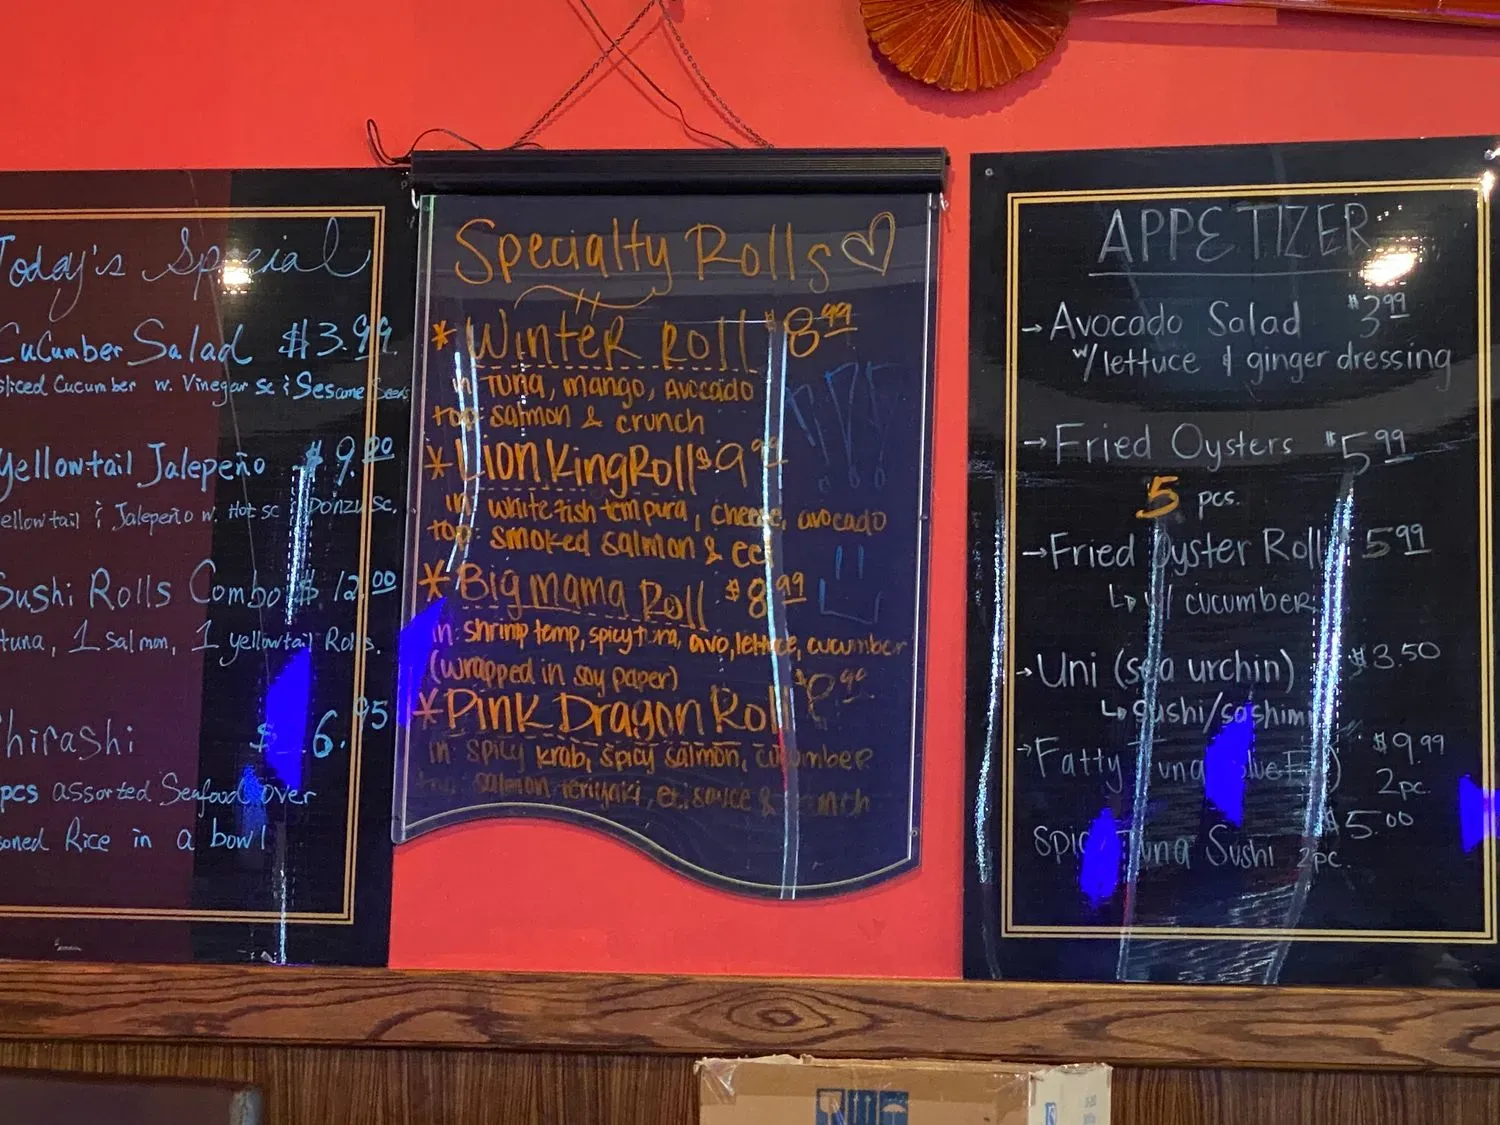 Today's Special
Cucumber Salad $3.99
sliced Cucumber w. Vinegar sc & Sesame Seeds
Yellowtail Jalepeño $9.00
yellowtail & Jalepeño w. Hot sc & Ponzu sc.
Sushi Rolls Combo $12.00
tuna, 1 salmon, 1 yellowtail Rolls.
Chirashi 6.95
pcs assorted Seafood over
Rice in a bowl
Specialty Rolls
* Winter Roll $8.99
in: Tuna, mango, Avocado
top: salmon & crunch
* Lion King Roll $9.99
in: white fish tempura, cheese, avocado
top: smoked salmon & eel
* Big mama Roll $8.99
in: shrimp temp, spicy tuna, avo, lettuce, cucumber
(wrapped in soy paper)
* Pink Dragon Roll
in: spicy krab, spicy salmon, cucumber
top: salmon teriyaki, el. sauce & crunch
APPETIZER
→ Avocado Salad $3.99
w/ lettuce & ginger dressing
→ Fried Oysters $5.99
5 pcs.
→ Fried Oyster Roll 5.99
↳ w/ cucumber
→ Uni (sea urchin) $3.50
↳ sushi/sashimi
→ Fatty Tuna $9.99
2pc.
Spicy Tuna Sushi 2pc. $5.00